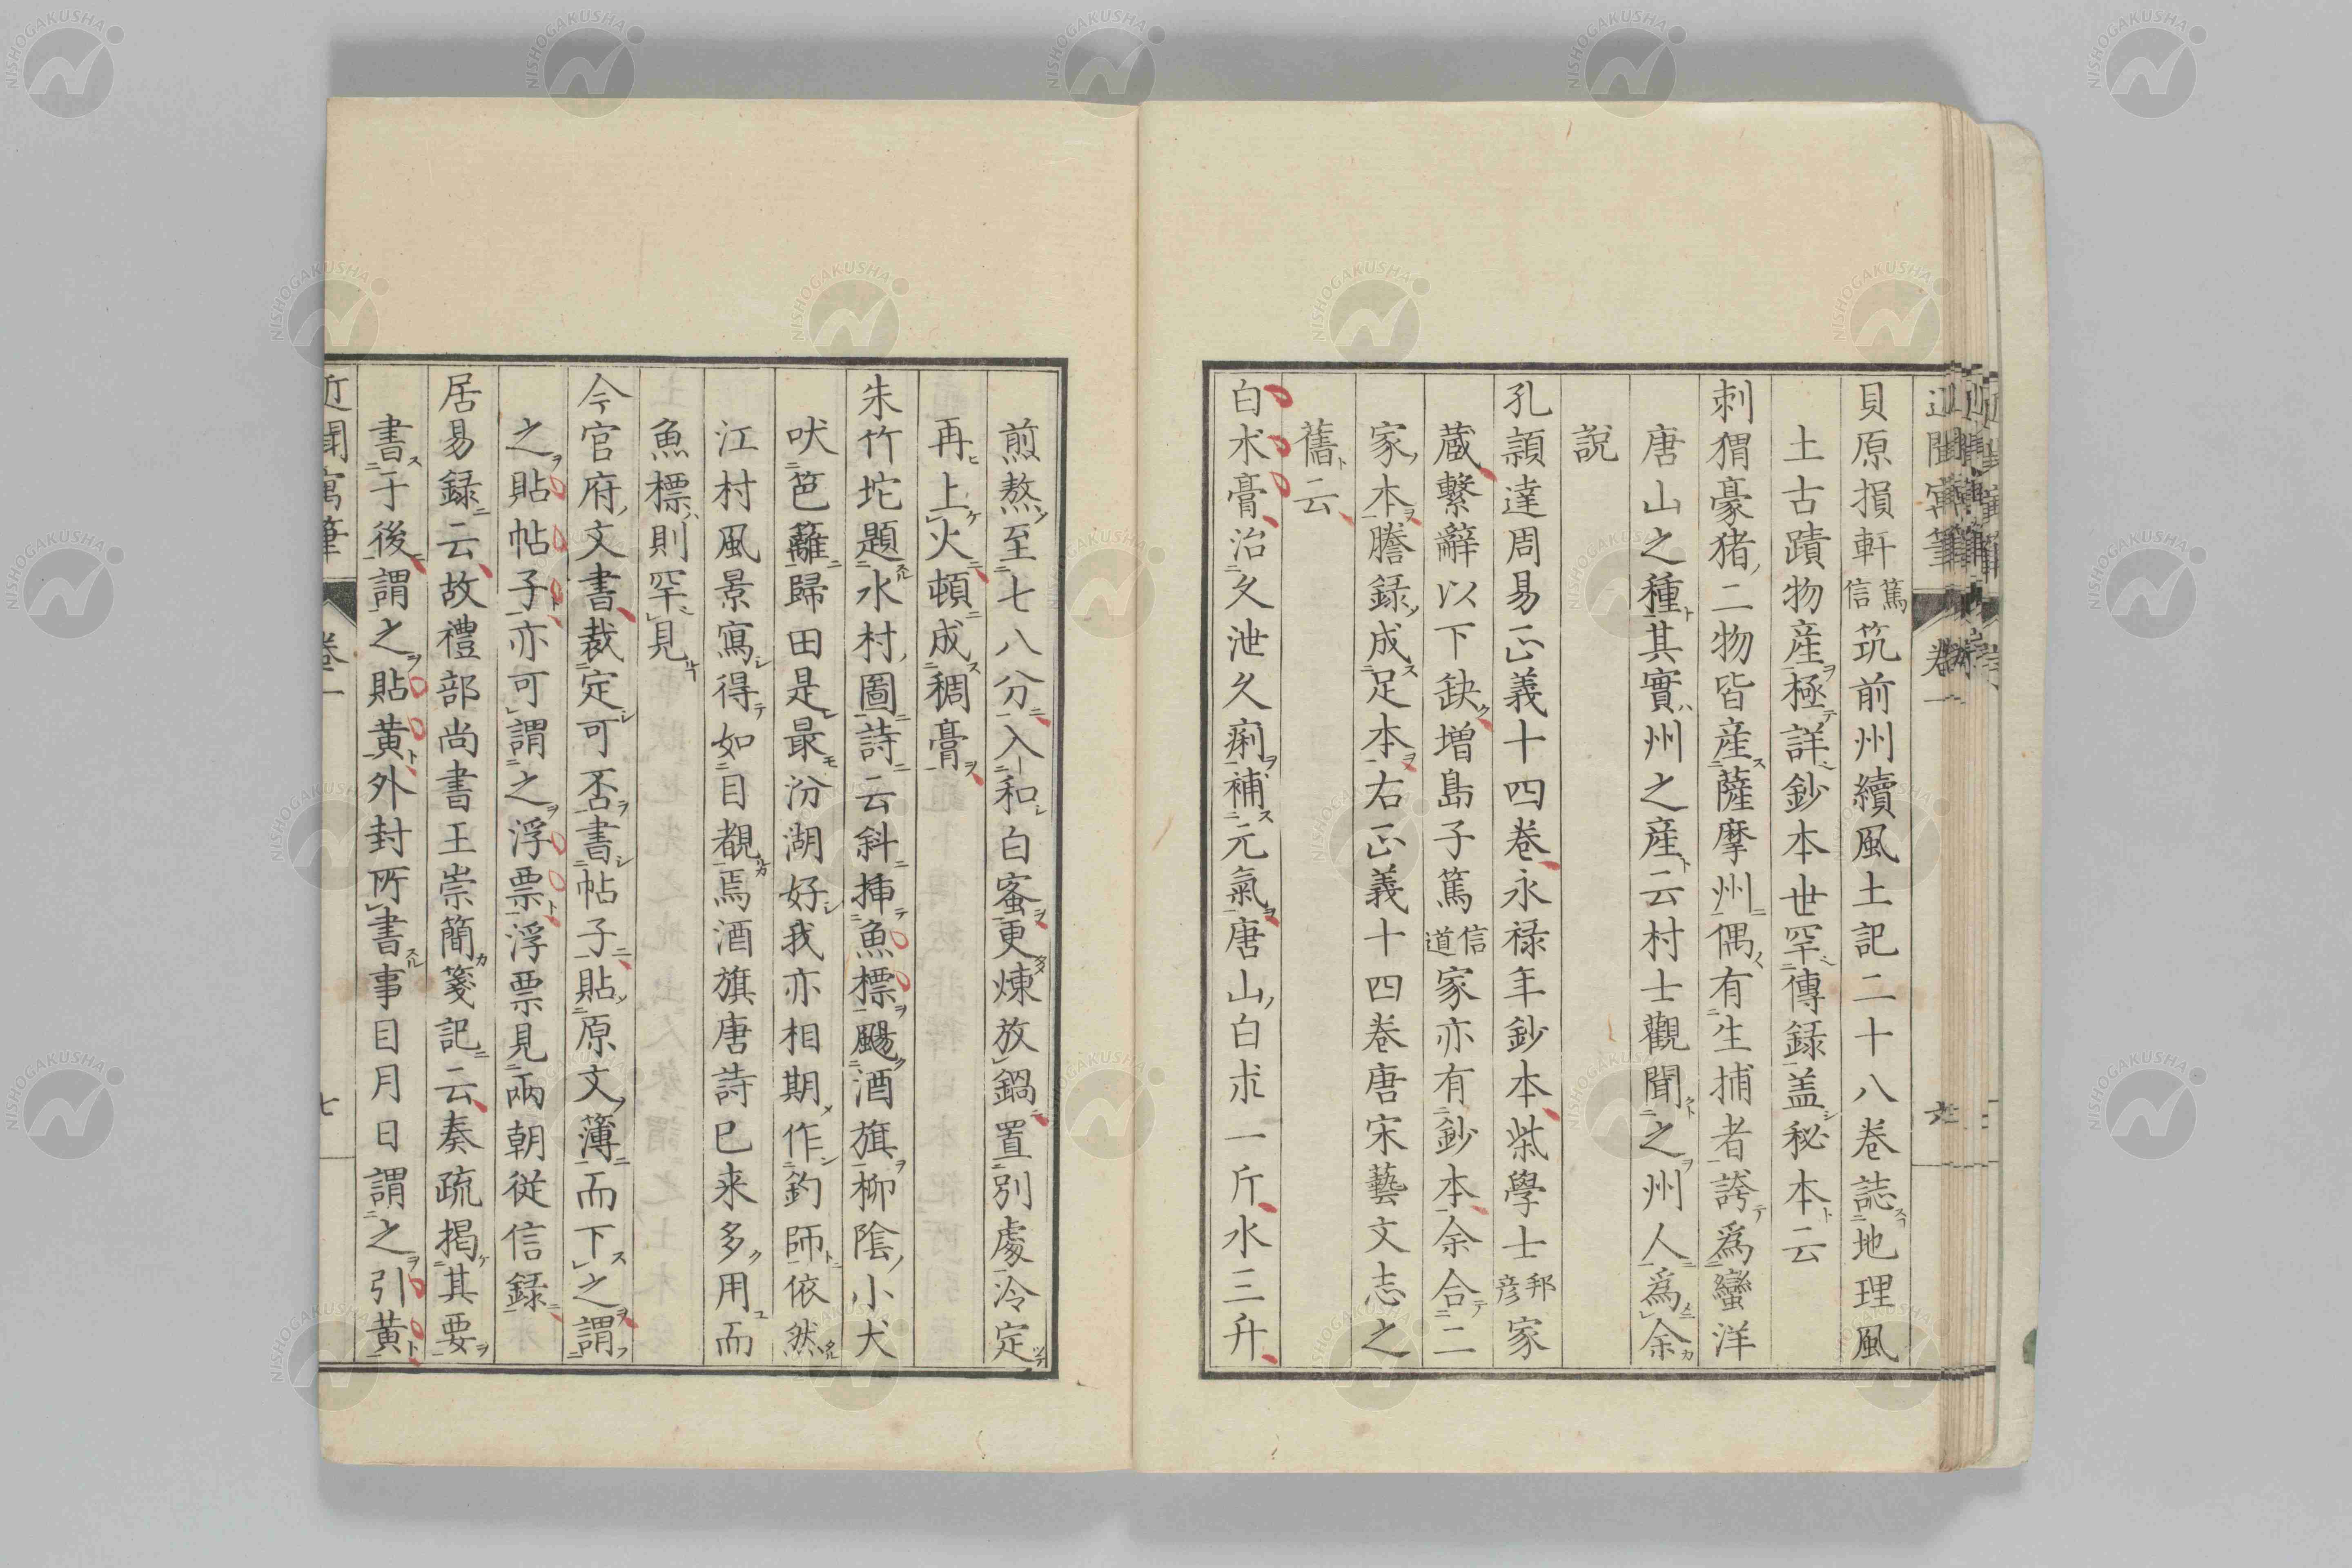 貝原損軒篤信筑前州續風土記二十八巻誌地理風
土古蹟物産極詳鈔本世罕傳録盖秘本云
刺猬豪猪二物皆産薩摩州偶有生捕者誇爲蠻洋
唐山之種其實州之産云村士觀聞之州人爲余
説
孔頴達周易正義十四巻永禄年鈔本柴學士邦彦家
蔵繫辭以下缺増島子篤信道家亦有鈔本余合二
家本謄録成足本右正義十四巻唐宋藝文志之
舊云
白朮膏治久泄久痢補元氣唐山白朮一斤水三升
煎熬至七八分入和白蜜更煉放鍋置別處冷定
再上火頓成稠膏
朱竹坨題水村圖詩云斜挿魚標颺酒旗柳陰小犬
吠笆籬歸田是最汾湖好我亦相期作釣師依然
江村風景寫得如目覩焉酒旗唐詩已来多用而
魚標則罕見
今官府文書裁定可否書帖子貼原文簿而下之謂
之貼帖子亦可謂之浮票浮票見兩朝從信録
居易録云故禮部尚書王崇簡箋記云奏疏揭其要
書于後謂之貼黄外封所書事目月日謂之引黄
近聞寓筆 卷一 七